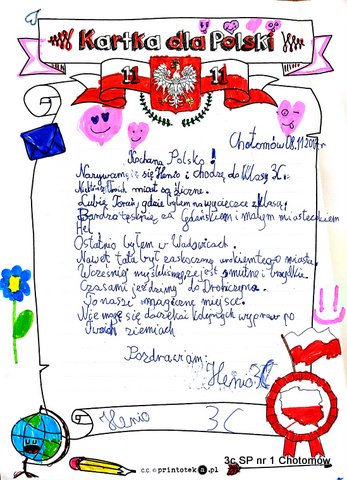 Kartka dla Polski
11 11
Chotomów 08.11.2017r
Kochana Polsko!
Nazywam się Henio i chodzę do klasy 3C.
miast są śliczne.
Lubię Toruń, gdzie byłem na wycieczce z klasą.
Bardzo tęsknię za Gdańskiem i małym miasteczkiem
Hel
Ostatnio byłem w Wadowicach.
Nawet tata był zaskoczony urokiem tego miasta.
Wcześniej myśleliśmy, że jest smutne i brzydkie.
Czasami jeździmy do Drohiczyna.
To nasze magiczne miejsce.
Nie mogę się doczekać kolejnych wypraw po
Twoich ziemiach
Pozdrawiam:
Henio 3C
Henio 3C
c.c. printoteka.pl
3c SP nr 1 Chotomów